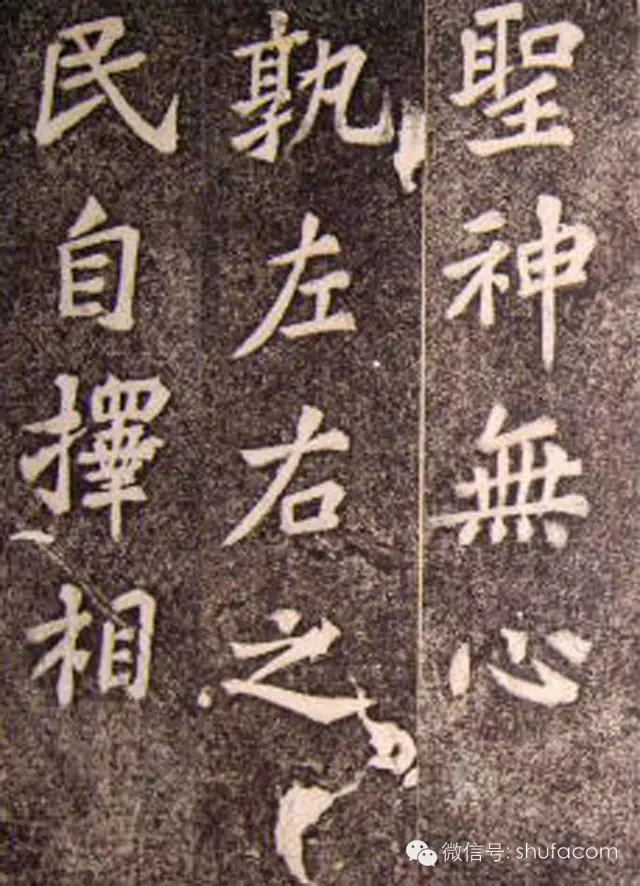 聖神無心
孰左右之
民自擇相
微信号: shufacom